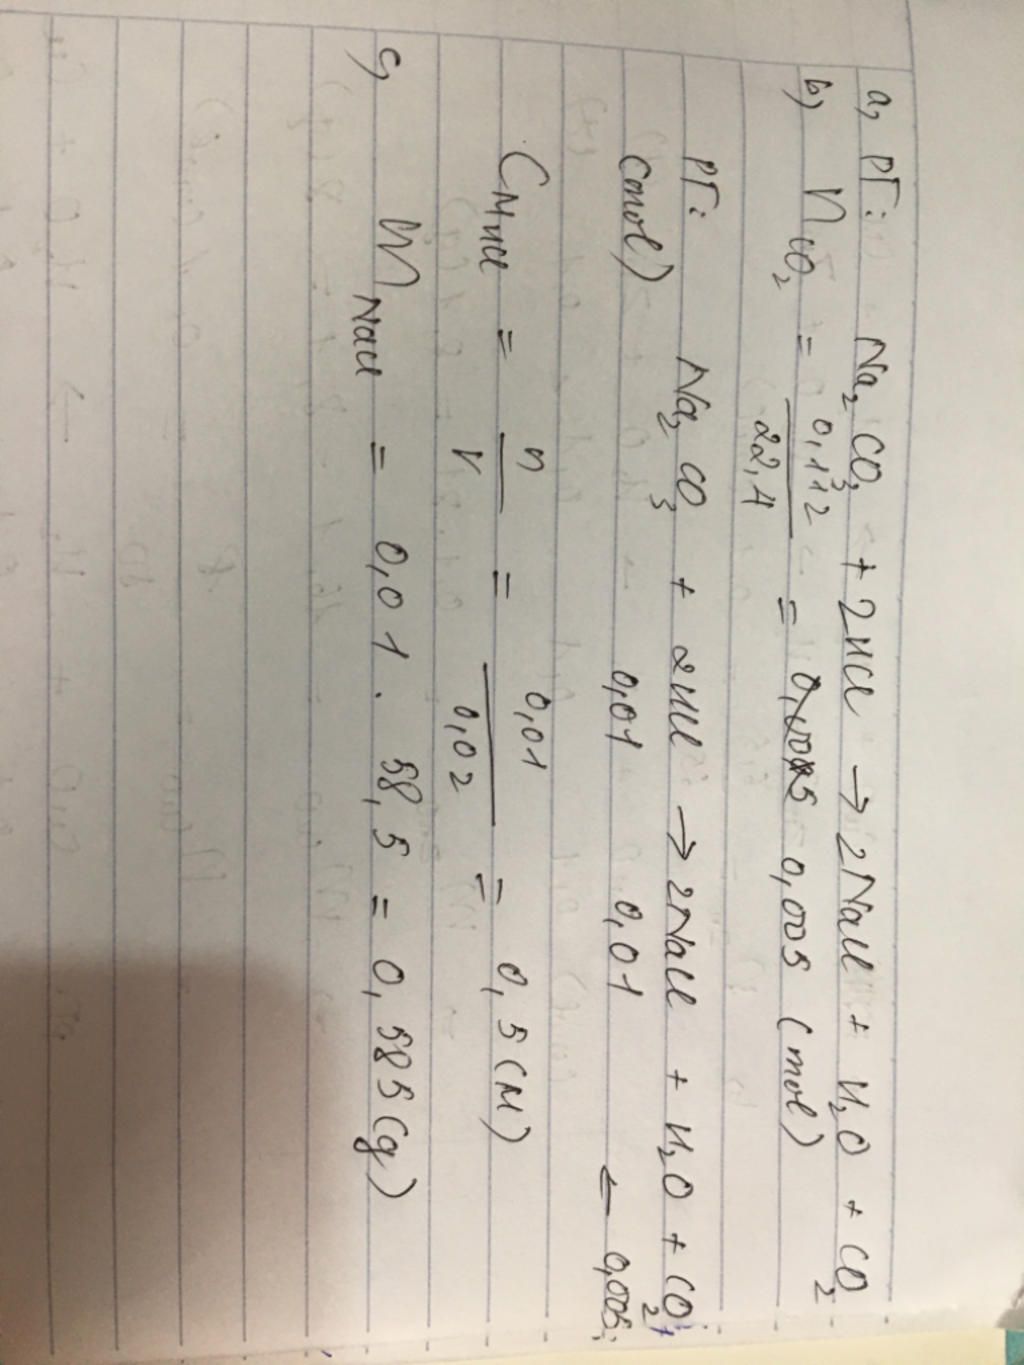 a, PT: Na₂CO₃ + 2HCl → 2NaCl + H₂O + CO₂
b) nCO₂ = 0,112 / 22,4 = 0,005 (mol)
PT: Na₂CO₃ + 2HCl → 2NaCl + H₂O + CO₂
(mol) 0,01 0,01 ← 0,005
CMHCl = n / V = 0,01 / 0,02 = 0,5 (M)
c, mNaCl = 0,01 . 58,5 = 0,585 (g)